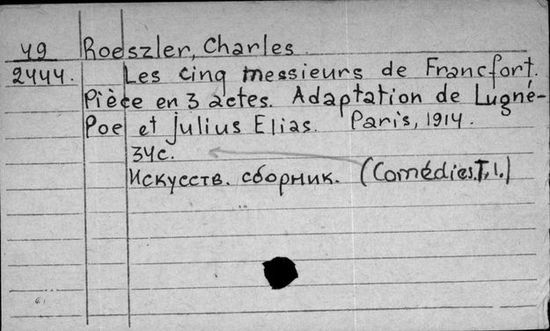 49 Roeszler, Charles.
2444. Les cinq messieurs de Francfort.
Pièce en 3 actes. Adaptation de Lugné-
Poe et Julius Elias. Paris, 1914.
34с.
Искусств. сборник. (Comédies. T, 1.)